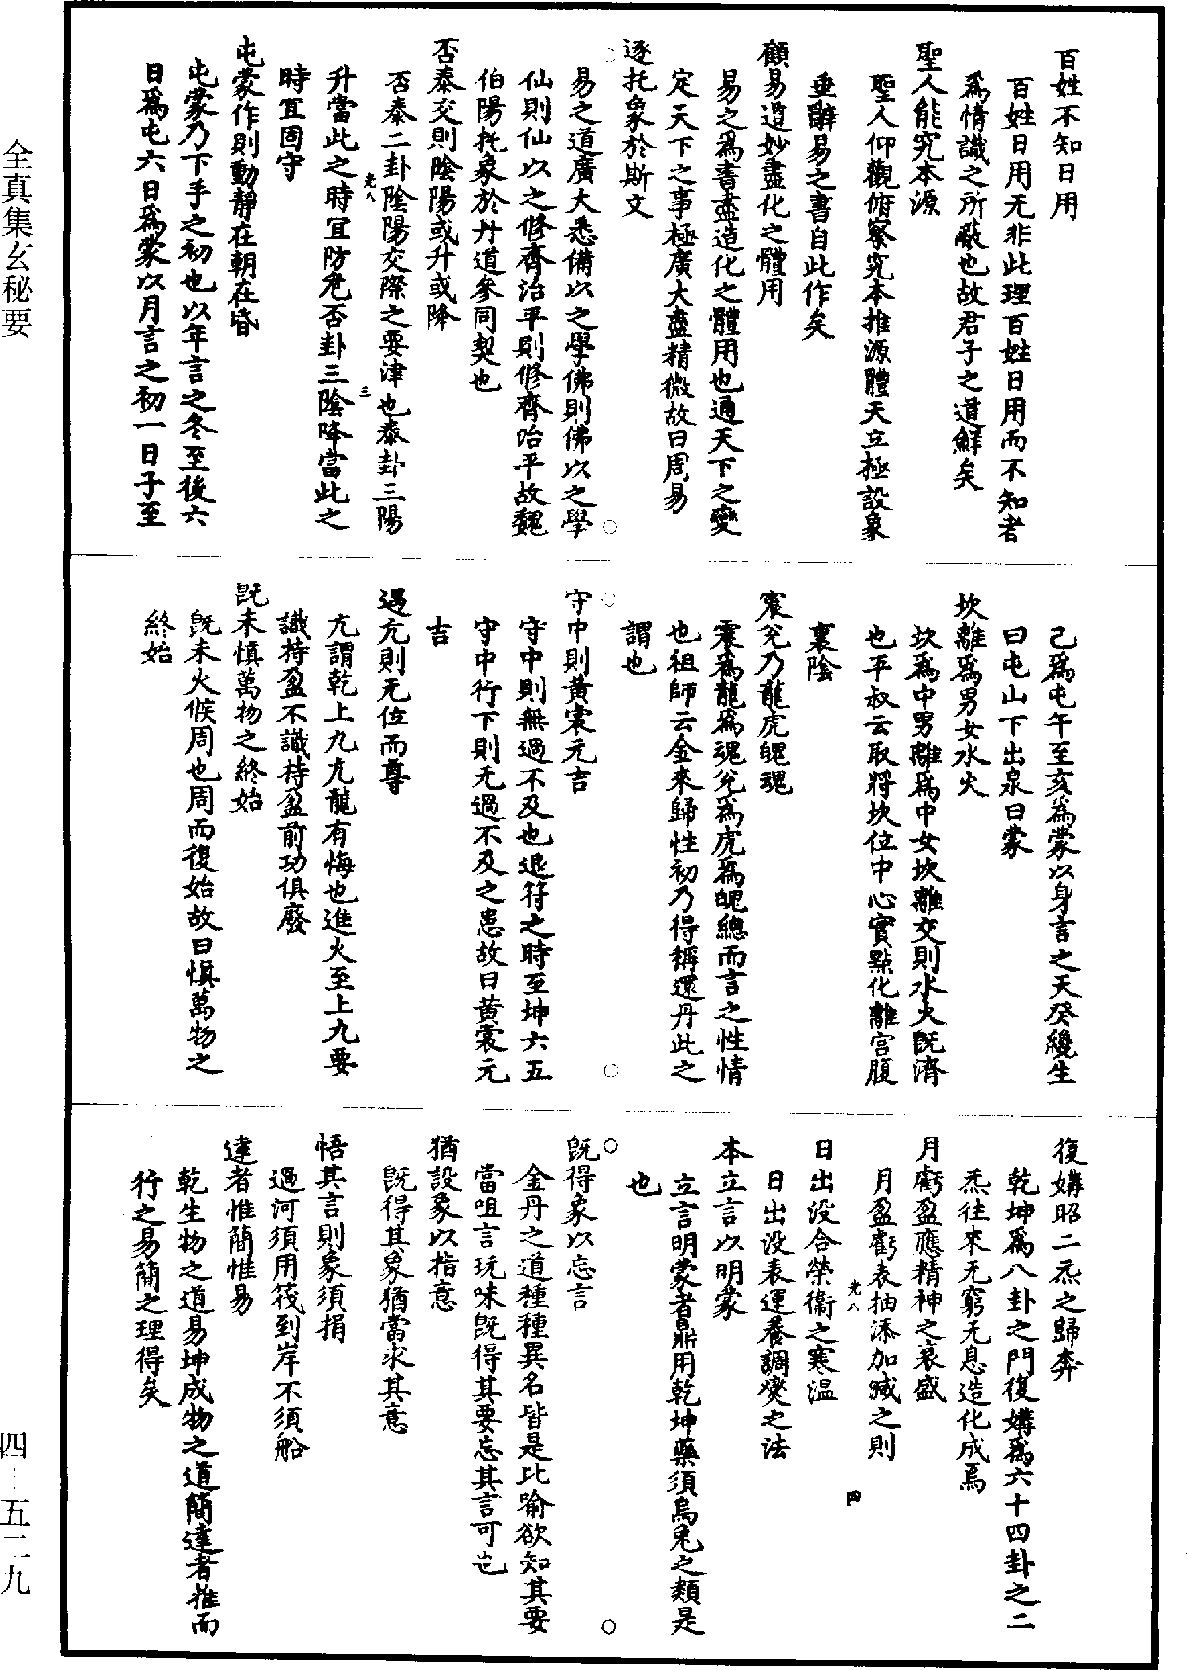 百姓不知日用
百姓日用无非此理百姓日用而不知者
爲情識之所蔽也故君子之道鮮矣
聖人能究本源
聖人仰觀俯察究本推源體天立極設象
垂辭易之書自此作矣
顧易道妙盡化之體用
易之爲書盡造化之體用也通天下之變
定天下之事極廣大盡精微故曰周易
逐托象於斯文
易之道廣大悉備以之學佛則佛以之學
仙則仙以之修齊治平則修齊治平故魏
伯陽托象於丹道參同契也
否泰交則陰陽或升或降
否泰二卦陰陽交際之要津也泰卦三陽
光八
三
升當此之時宜防危否卦三陰降當此之
時宜固守
屯蒙作則動靜在朝在昏
屯蒙乃下手之初也以年言之冬至後六
日爲屯六日爲蒙以月言之初一日子至
己爲屯午至亥爲蒙以身言之天癸纔生
曰屯山下出泉曰蒙
坎離爲男女水火
坎爲中男離爲中女坎離交則水火旣濟
也平叔云取將坎位中心實點化離宮腹
裏陰
震兌乃龍虎魄魂
震爲龍爲魂兌爲虎爲魄總而言之性情
也祖師云金來歸性初乃得稱還丹此之
謂也
守中則黃裳元吉
守中則無過不及也退符之時至坤六五
守中行下則无過不及之患故曰黃裳元
吉
遇亢則无位而尊
亢謂乾上九亢龍有悔也進火至上九要
識持盈不識持盈前功俱廢
旣未慎萬物之終始
旣未火候周也周而復始故曰慎萬物之
終始
復姤昭二炁之歸奔
乾坤爲八卦之門復姤爲六十四卦之二
炁往來无窮无息造化成焉
月虧盈應精神之衰盛
月盈虧表抽添加減之則
光八
四
日出没合榮衞之寒溫
日出没表運養調燮之法
本立言以明蒙
立言明蒙者鼎用乾坤藥須烏兔之類是
也
旣得象以忘言
金丹之道種種異名皆是比喻欲知其要
當咀言玩味旣得其要忘其言可也
猶設象以指意
旣得其象猶當求其意
悟其言則象須捐
過河須用筏到岸不須船
達者惟簡惟易
乾生物之道易坤成物之道簡達者推而
行之易簡之理得矣
全真集玄秘要
四—五二九